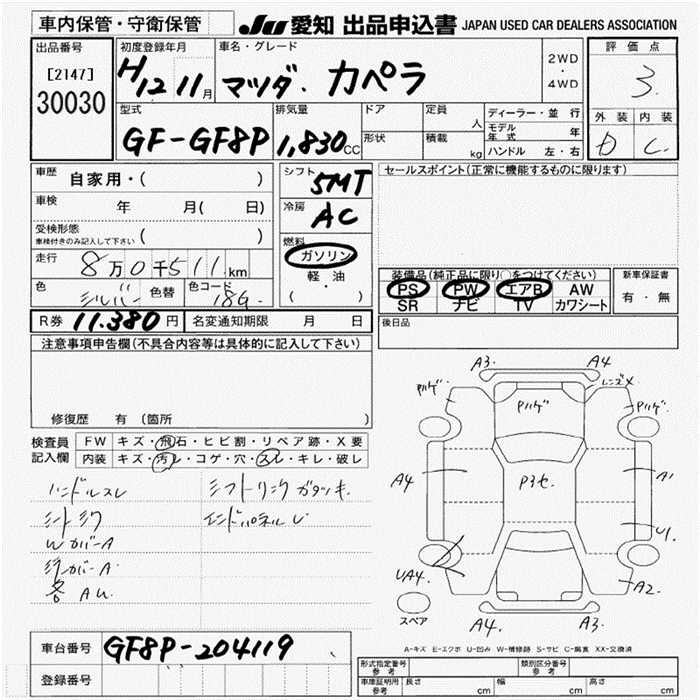 車内保管・守衛保管
JU 愛知 出品申込書 JAPAN USED CAR DEALERS ASSOCIATION
出品番号
[2147]
30030
初度登録年月
H12 11月
車名・グレード
マツダ. カペラ
2WD
・
4WD
評価点
3.
外装 内装
D C.
型式
GF-GF8P
排気量
1,830CC
ドア
形状
定員
人
積載
kg
ディーラー・並行
モデル年式 年
ハンドル 左・右
車歴 自家用・( )
車検 年 月( 日)
受検形態
車検付きのみ記入して下さい
走行 8万0千511km
色 シルバー 色替 色コード 18G.
シフト 5MT
冷房 AC
燃料
ガソリン
軽・油
( )
セールスポイント(正常に機能するものに限ります)
装備品(純正品に限り○をつけてください)
PS PW エアB AW
SR ナビ TV カワシート
新車保証書
有・無
R券 11.380円 名変通知期限 月 日
後日品
注意事項申告欄(不具合内容等は具体的に記入して下さい)
修復歴 有 (箇所 )
検査員
記入欄
FW キズ・飛石・ヒビ割・リペア跡・X要
内装 キズ・汚レ・コゲ・穴・スレ・キレ・破レ
ハンドルスレ シフトリンクガタツキ
シートシワ エンドパネルU
Wカバー A
各 AU.
A3. A4
レンズX
Pハゲ Pハゲ Pハゲ
A4 P3セ. A1
U1.
UA4. A2.
スペア A4. A3.
A-キズ E-エクボ U-凹み W-補修跡 S-サビ C-腐食 XX-交換済
車台番号 GF8P-204119
登録番号
形式指定番号
参考
類別区分番号
参考
車庫証明用
参考
長さ cm 幅 cm 高さ cm